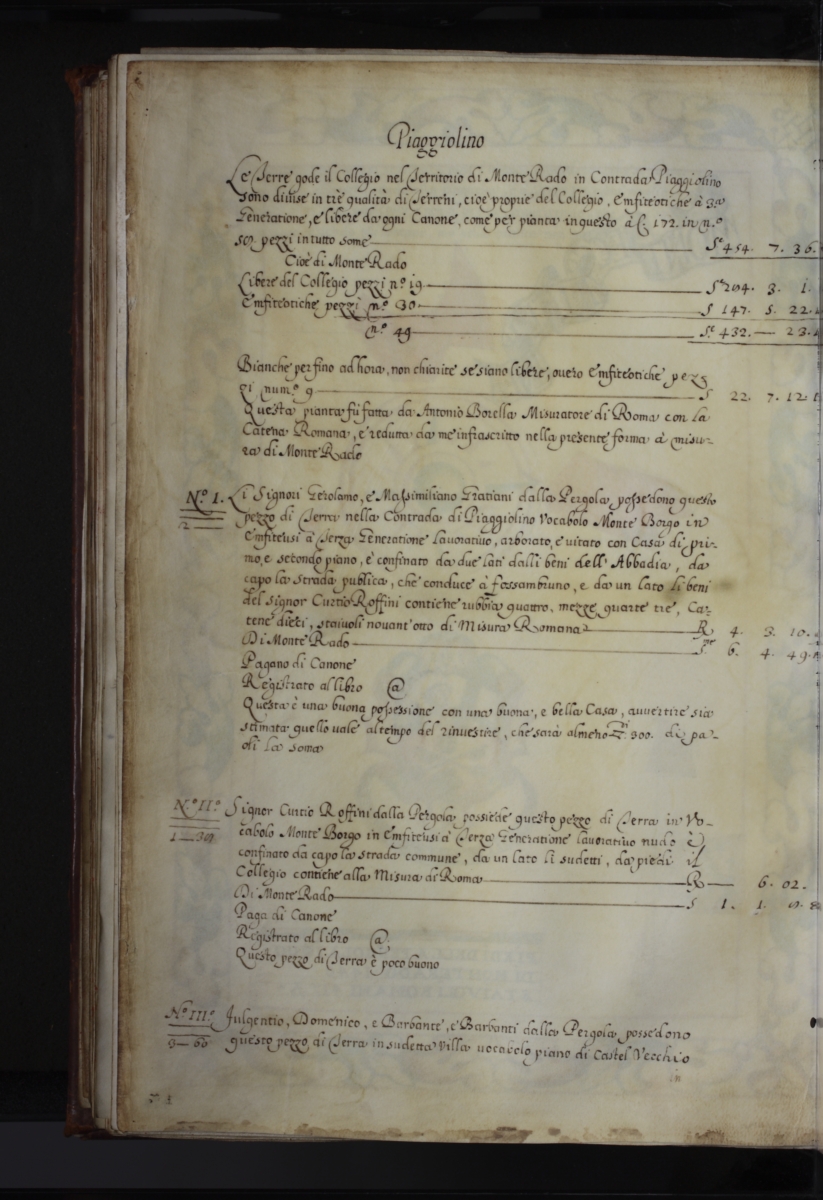 Piaggiolino
Le Terre gode il Collegio nel Territorio di Monte Rado in Contrada Piaggiolino
sono diuise in trè qualità di Terreni, cioè proprie del Collegio, Emfiteotiche à 3a
Generatione, e libere da ogni Canone, come per pianta in questo à C. 172. in n.o
pezzi in tutto some 454. 7. 36.
Cioè di Monte Rado
Libere del Collegio pezzi n.o 19 3. 1.
Emfiteotiche pezzi n.o 30 S 147. 5. 22.
n.o 49 S.e 432. — 23.
Bianche per fino ad hora, non chiarite se siano libere, ouero Emfiteotiche pez
zi num.o 9 S 22. 7. 12.
Questa pianta fù fatta da Antonio Borella Misuratore di Roma con la
Catena Romana, e redutta da me infrascritto nella presente forma à misu-
ra di Monte Rado
N.o I. Li Signori Gerolamo, e Massimiliano Gratiani dalla Pergola, possedono questo
12 pezzo di Terra nella Contrada di Piaggiolino Vocabolo Monte Borgo in
Emfiteusi à Terza Generatione lauoratiuo, arborato, e uitato con Casa di pri-
mo, e secondo piano, è confinato da due lati dalli beni dell'Abbadia, da
capo la strada publica, che conduce à fossambruno, e da un lato li beni
del Signor Curtio Roffini contiene rubbia quattro, mezze quarte tre, Ca-
tene dieci, staiuoli nouant'otto di Misura Romana R 4. 3. 10.
Di Monte Rado S. 6. 4. 49.
Pagano di Canone
Registrato al libro @
Questa è una buona possessione con una buona, e bella Casa, auuertire sia
stimata quello uale al tempo del rinuestire, che sarà almeno 300. di pa-
oli la soma
N.o II.o Signor Curtio Roffini dalla Pergola possiede questo pezzo di Terra in Vo-
1—39 cabolo Monte Borgo in Emfiteusi à Terza Generatione lauoratiuo nudo è
confinato da capo la strada commune, da un lato li sudetti, da piedi il
Collegio contiene alla Misura di Roma R — 6. 02.
Di Monte Rado S 1. 1. 9.
Paga di Canone
Registrato al libro @
Questo pezzo di Terra è poco buono
N.o III.o Fulgentio, Domenico, e Barbante, e Barbanti dalla Pergola possedono
questo pezzo di Terra in sudetta Villa uocabolo piano di Castel Vecchio
in